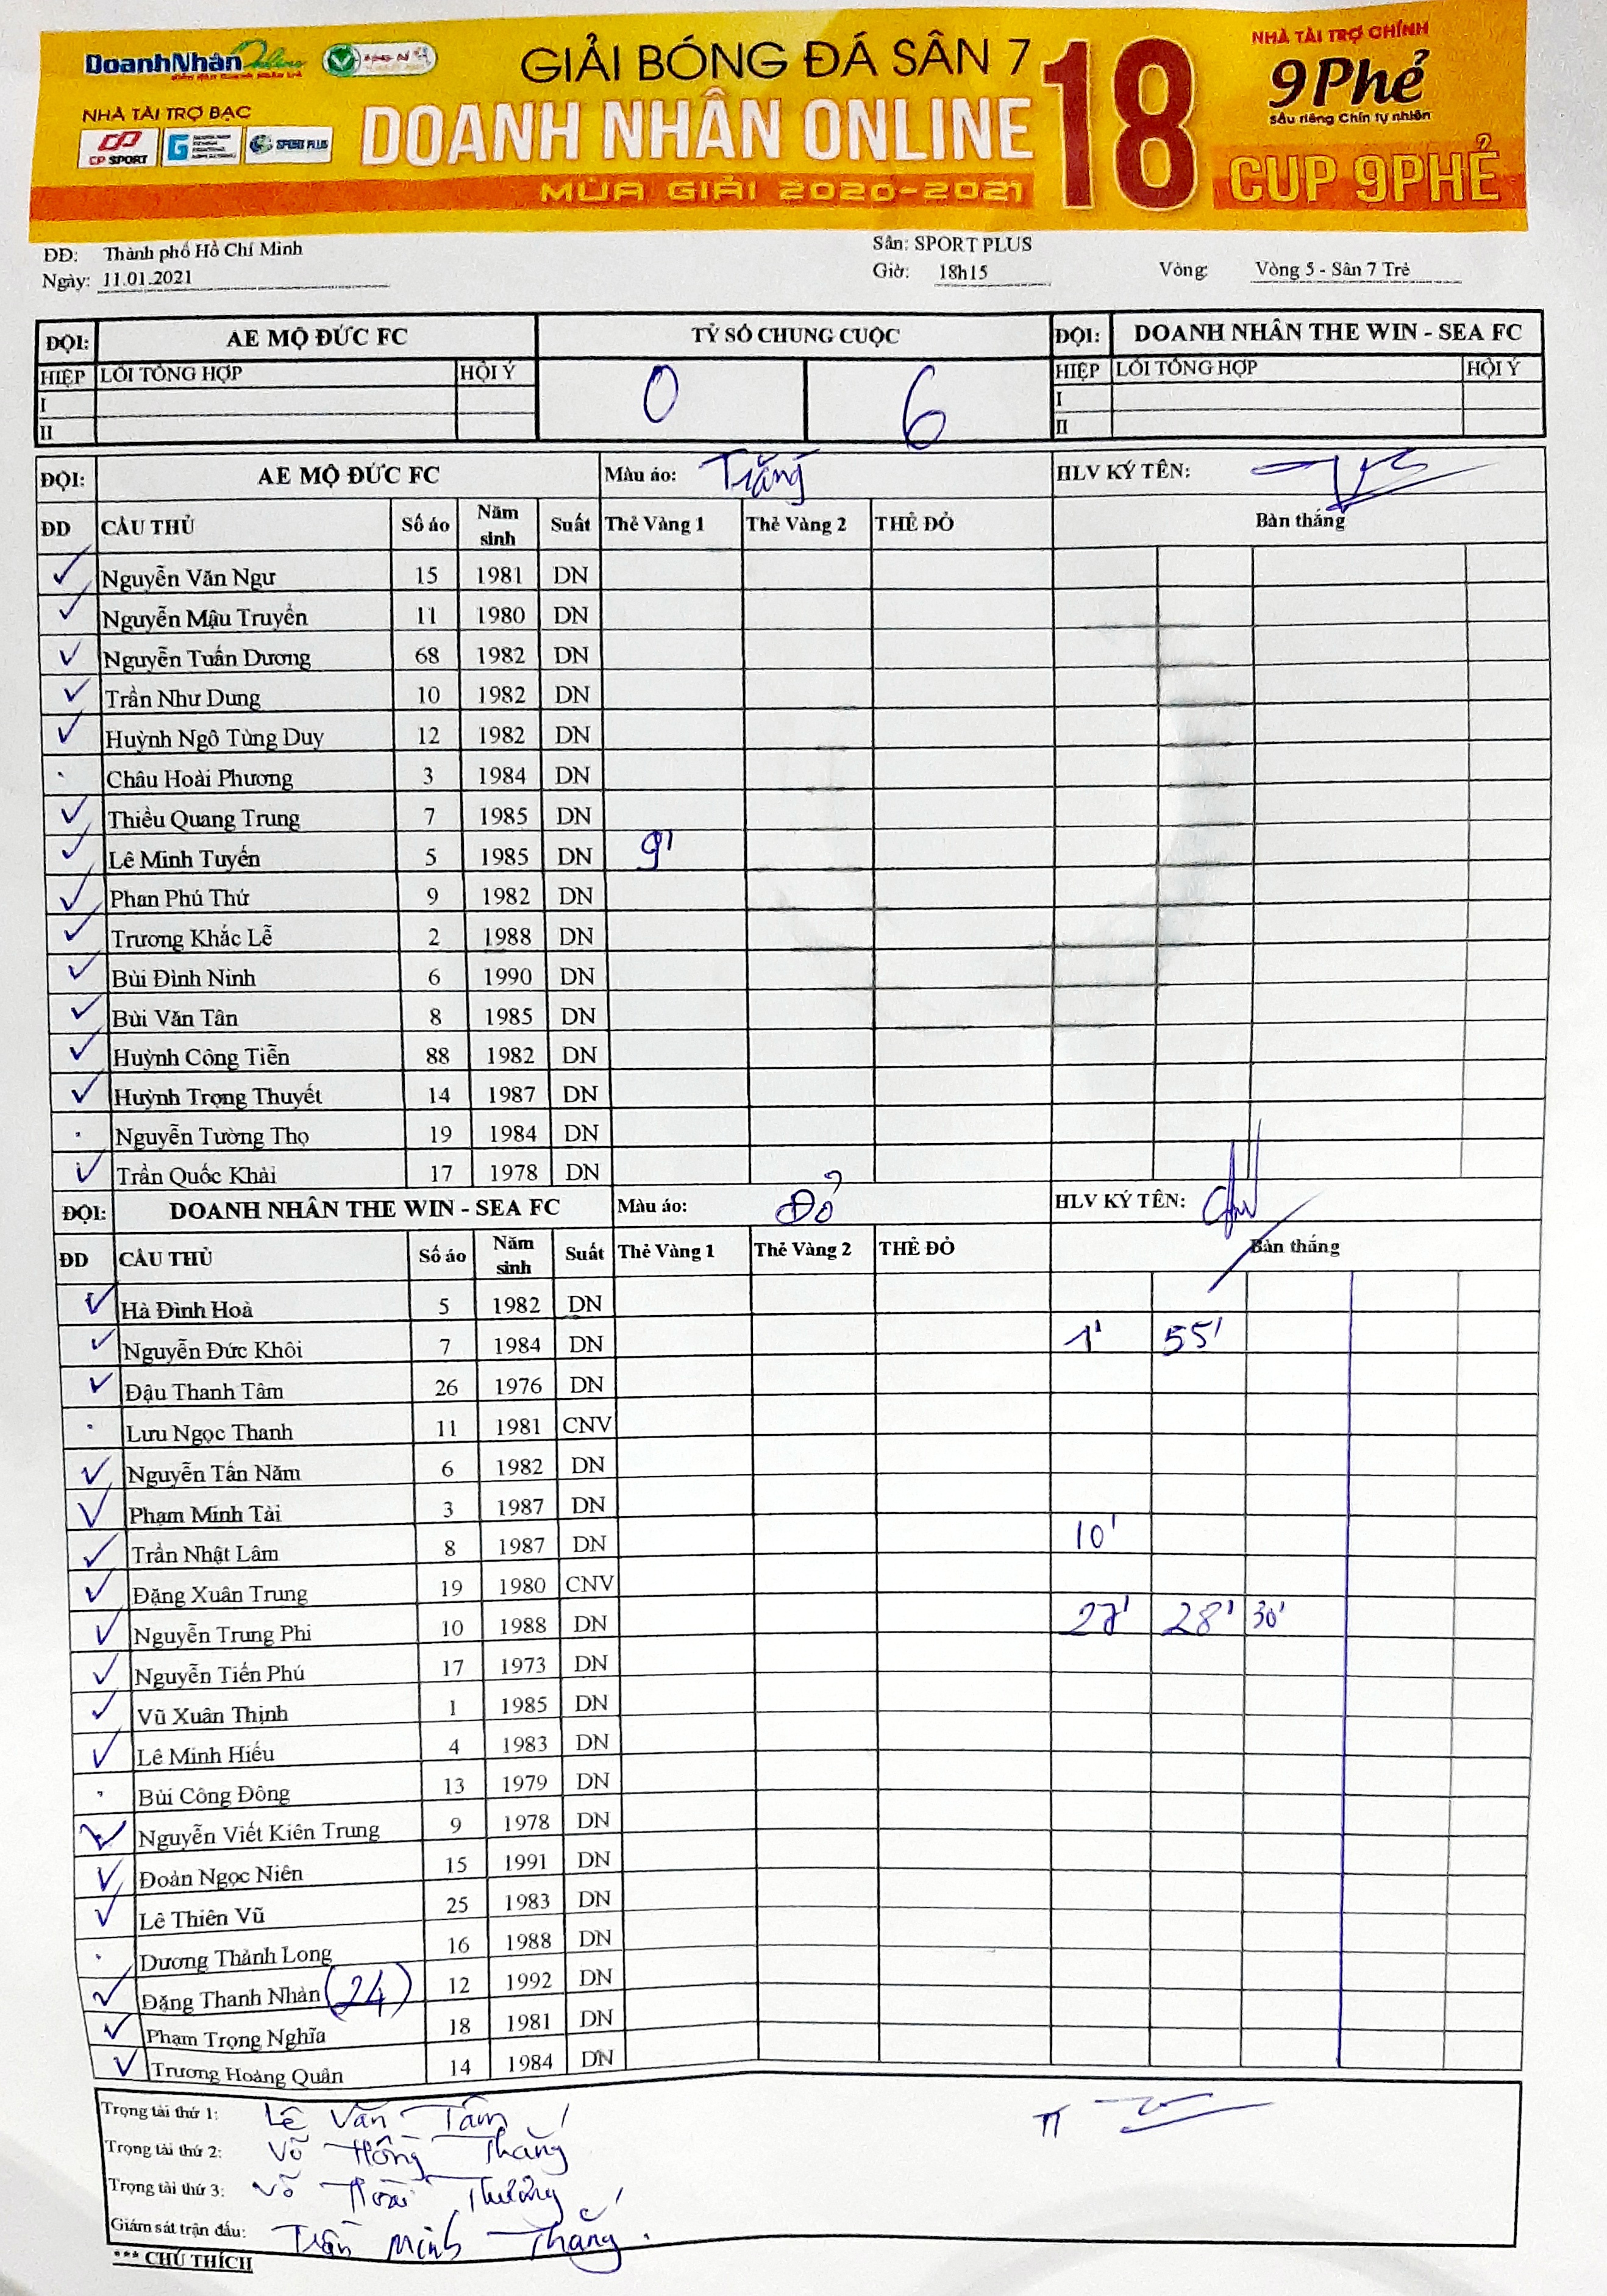 DoanhNhân Online
GIẢI BÓNG ĐÁ SÂN 7
DOANH NHÂN ONLINE 18
MÙA GIẢI 2020-2021
NHÀ TÀI TRỢ CHÍNH
9Phẻ
Sầu riêng Chín tự nhiên
CUP 9PHẺ
NHÀ TÀI TRỢ BẠC
CP SPORT SPORT PLUS
ĐĐ: Thành phố Hồ Chí Minh Sân: SPORT PLUS
Ngày: 11.01.2021 Giờ: 18h15 Vòng: Vòng 5 - Sân 7 Trẻ
ĐỘI: AE MỘ ĐỨC FC TỶ SỐ CHUNG CUỘC ĐỘI: DOANH NHÂN THE WIN - SEA FC
HIỆP LỖI TỔNG HỢP HỘI Ý 0 6 HIỆP LỖI TỔNG HỢP HỘI Ý
I I
II II
ĐỘI: AE MỘ ĐỨC FC Màu áo: Trắng HLV KÝ TÊN:
ĐD CẦU THỦ Số áo Năm sinh Suất Thẻ Vàng 1 Thẻ Vàng 2 THẺ ĐỎ Bàn thắng
✓ Nguyễn Văn Ngư 15 1981 DN
✓ Nguyễn Mậu Truyền 11 1980 DN
✓ Nguyễn Tuấn Dương 68 1982 DN
✓ Trần Như Dung 10 1982 DN
✓ Huỳnh Ngô Tùng Duy 12 1982 DN
Châu Hoài Phương 3 1984 DN
✓ Thiều Quang Trung 7 1985 DN
✓ Lê Minh Tuyến 5 1985 DN 9'
✓ Phan Phú Thứ 9 1982 DN
✓ Trương Khắc Lễ 2 1988 DN
✓ Bùi Đình Ninh 6 1990 DN
✓ Bùi Văn Tân 8 1985 DN
✓ Huỳnh Công Tiễn 88 1982 DN
✓ Huỳnh Trọng Thuyết 14 1987 DN
Nguyễn Tường Thọ 19 1984 DN
✓ Trần Quốc Khải 17 1978 DN
ĐỘI: DOANH NHÂN THE WIN - SEA FC Màu áo: Đỏ HLV KÝ TÊN:
ĐD CẦU THỦ Số áo Năm sinh Suất Thẻ Vàng 1 Thẻ Vàng 2 THẺ ĐỎ Bàn thắng
✓ Hà Đình Hoà 5 1982 DN
✓ Nguyễn Đức Khôi 7 1984 DN 1' 55'
✓ Đậu Thanh Tâm 26 1976 DN
Lưu Ngọc Thanh 11 1981 CNV
✓ Nguyễn Tấn Năm 6 1982 DN
✓ Phạm Minh Tài 3 1987 DN
✓ Trần Nhật Lâm 8 1987 DN 10'
✓ Đặng Xuân Trung 19 1980 CNV
✓ Nguyễn Trung Phi 10 1988 DN 27' 28' 30'
✓ Nguyễn Tiến Phú 17 1973 DN
✓ Vũ Xuân Thịnh 1 1985 DN
✓ Lê Minh Hiếu 4 1983 DN
Bùi Công Đông 13 1979 DN
✓ Nguyễn Viết Kiên Trung 9 1978 DN
✓ Đoàn Ngọc Niên 15 1991 DN
✓ Lê Thiên Vũ 25 1983 DN
Dương Thành Long 16 1988 DN
✓ Đặng Thanh Nhàn (24) 12 1992 DN
✓ Phạm Trọng Nghĩa 18 1981 DN
✓ Trương Hoàng Quân 14 1984 DN
Trọng tài thứ 1: Lê Văn Tâm
Trọng tài thứ 2: Võ Hồng Thắng
Trọng tài thứ 3: Võ Hoài Thưởng
Giám sát trận đấu: Trần Minh Thắng.
*** CHÚ THÍCH